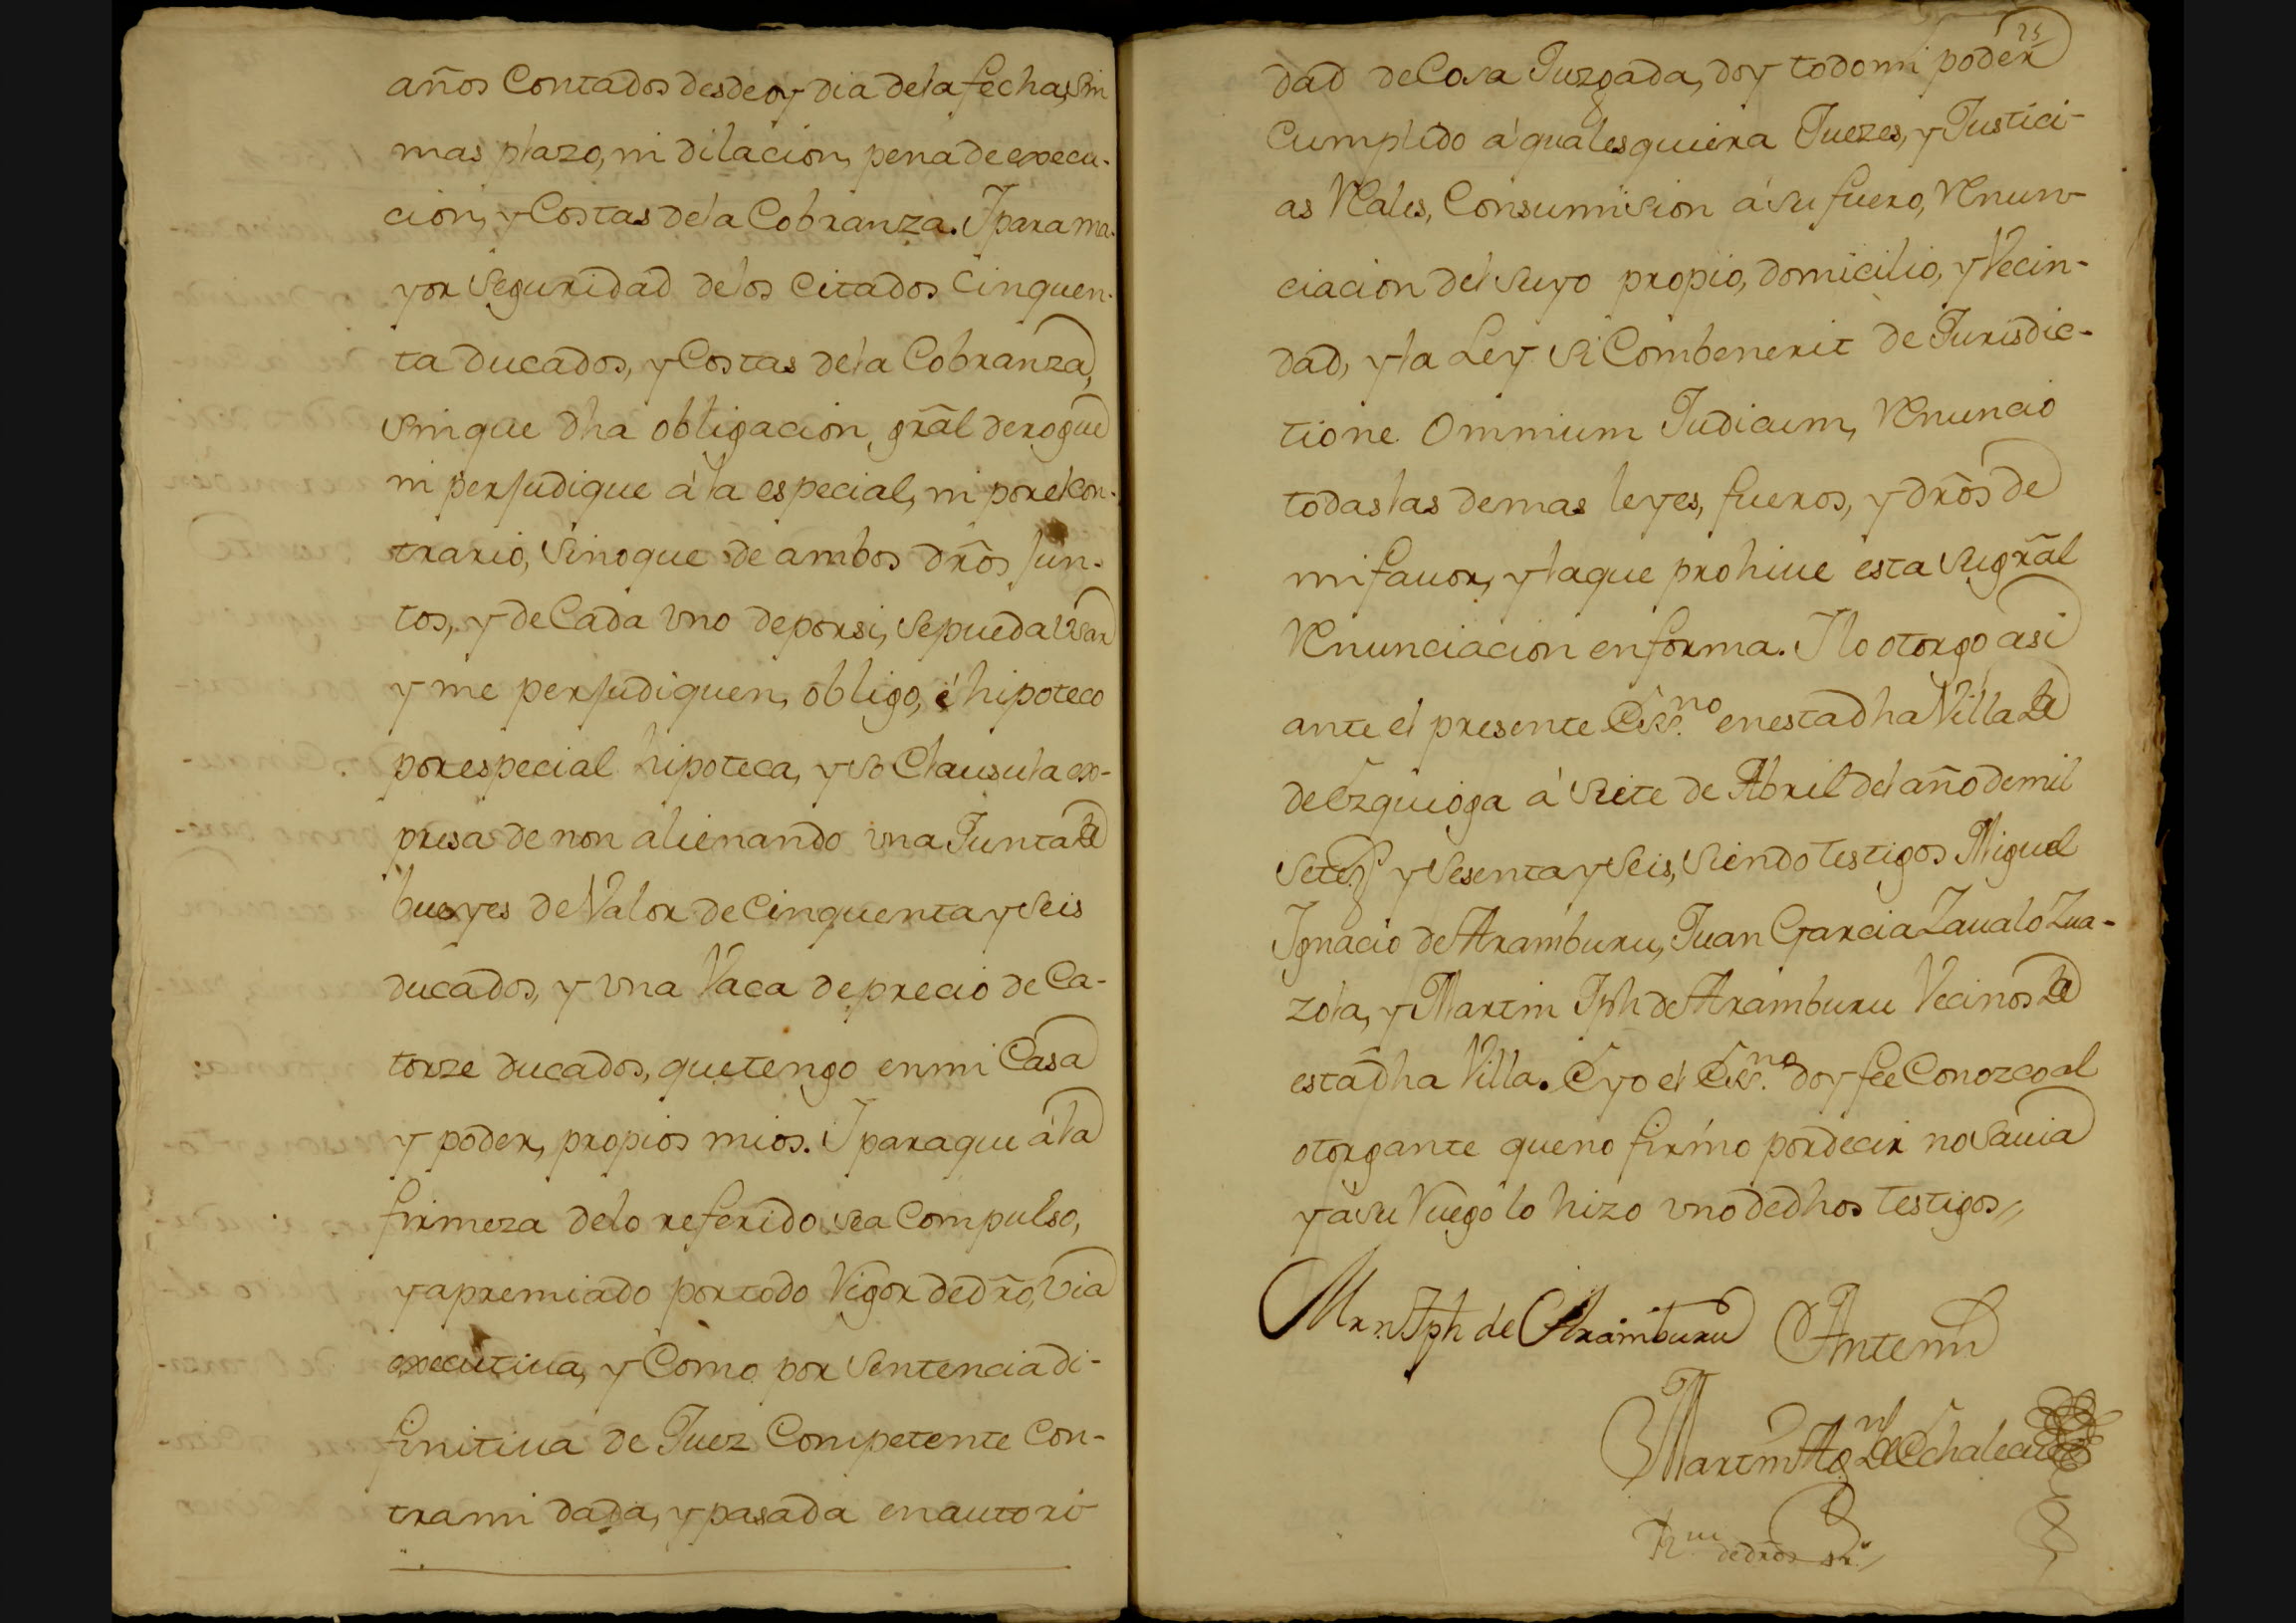 años Contados desde oy dia dela fecha, sin
mas plazo, ni dilacion, pena de execu-
cion, y Costas dela Cobranza. Y para ma-
yor seguridad delos Citados Cinquen-
ta ducados, y Costas dela Cobranza,
sin que dha obligacion, grãl derogue
ni perjudique á la especial, ni por el con-
trario, sino que de ambos drõs jun-
tos, y de Cada uno de porsi, se pueda usar
y me perjudiquen, obligo, é hipoteco
por especial hipoteca, y so Clausula ex-
presa de non alienando una Junta de
bueyes de Valor de Cinquenta y seis
ducados, y una Vaca de precio de Ca-
torze ducados, que tengo en mi Casa
y poder, propios mios. Y para que á la
firmeza delo referido sea Compulso,
y apremiado por todo Vigor de drõ, via
executiua, y Como por sentencia di-
finitiua de Juez Competente con-
tra mi dada, y pasada en autori-
25
dad de Cosa Juzgada, doy todo mi poder
Cumplido á quales quiera Juezes, y Justici-
as Reales, Con sumision á su fuero, Renun-
ciacion del suyo propio, domicilio, y Vecin-
dad, y la Ley si Combenerit de Jurisdic-
tione Omnium Judicum, Renuncio
todas las demas leyes, fueros, y drõs de
mi fauor, y la que prohiue esta su grãl
Renunciacion en forma. Y lo otorgo asi
ante el presente Ess.no en esta dha Villa de
de Ezquioga á siete de Abril del año de mil
setes. y sesenta y seis, siendo testigos Miguel
Ygnacio de Aramburu, Juan Garcia Zaualo Zua-
zola, y Martin Jph de Aramburu Vecinos de
esta dha Villa. E yo el Ess.no doy fee Conozco al
otorgante que no firmo por decir no sauia
y á su Ruego lo hizo uno de dhos testigos //
Mrn Jph de Aramburu Ante mi
Martin Ag.n de Echalecu
de drõs